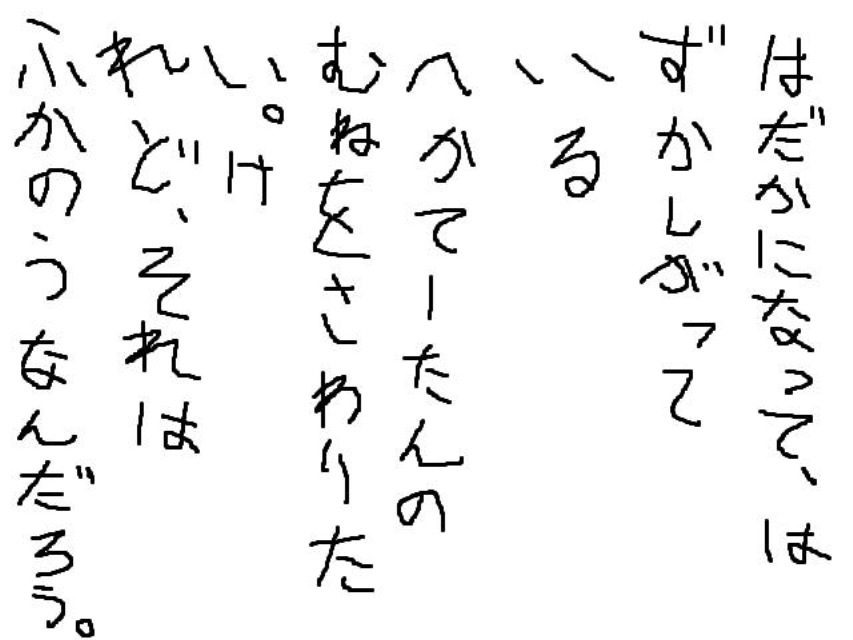 はだかになって、は
ずかしがって
いる
へかてーたんの
むねをさわりた
い。け
れど、それは
ふかのうなんだろう。